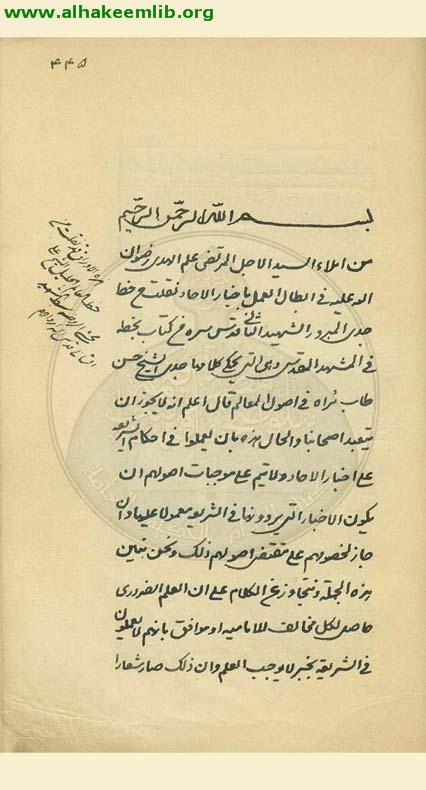 www.alhakeemlib.org خط
۴۴۵
بسم الله الرحمن الرحيم
من املاء السيد الاجل المرتضى علم الهدى رضوان
الله عليه في ابطال العمل باخبار الاحاد نقلت من خط
جدى المبرور الشهيد الثاني قدس سره في كتاب بخطه
في المشهد المقدس وهي التي يحكي كلامها جدى الشيخ حسن
طاب ثراه في اصول المعالم قال اعلم انه لا يجوز ان
يتعبد اصحابنا والحال هذه بان يعملوا في احكام الشريعة
على اخبار الاحاد ولا يتم على موجبات اصولهم ان
يكون الاخبار التي يروونها في الشريعة معمولا عليها وان
جاز لخصومهم على مقتضى اصولهم ذلك ونحن نبين
هذه الجملة ونتجاوز عن الكلام على ان العلم الضرورى
حاصل لكل مخالف للامامية او موافق بانهم لا يعملون
في الشريعة بخبر لا يوجب العلم وان ذلك صار شعارا